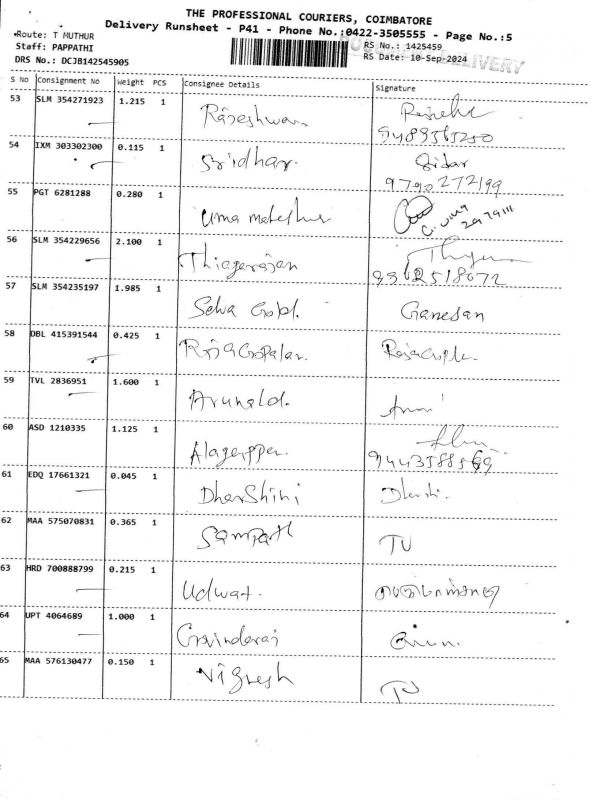 THE PROFESSIONAL COURIERS, COIMBATORE
Delivery Runsheet - P41 - Phone No.:0422-3505555 - Page No.:5
Route: T MUTHUR
Staff: PAPPATHI
DRS No.: DCJB142545905
RS No.: 1425459
RS Date: 10-Sep-2024
DELIVERY
S No Consignment No Weight PCS Consignee Details Signature
53 SLM 354271923 1.215 1 Rajeshwari
54 IXM 303302300 0.115 1 Sridhar. Sridar
9790272199
55 PGT 6281288 0.280 1 Uma maheshwar
56 SLM 354229656 2.100 1 Thiagerajan
9362518672
57 SLM 354235197 1.985 1 Selva Gopl. Ganesan
58 DBL 415391544 0.425 1 RajaGopalan.
59 TVL 2836951 1.600 1 Arunald.
60 ASD 1210335 1.125 1 Alagerppan.
9443588569
61 EDQ 17661321 0.045 1 DharShini
62 MAA 575070831 0.365 1 Sampath TU
63 HRD 700888799 0.215 1 Udwat.
64 UPT 4064689 1.000 1 Govinderaj
65 MAA 576130477 0.150 1 Vignesh TU